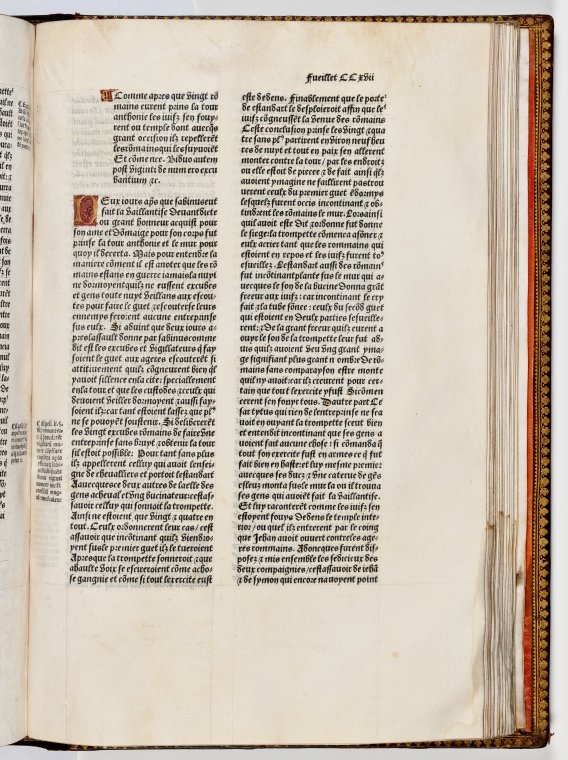 Fueillet CCxvii
Comme apres que vingt rõ
mains eurent prins la tour
anthonie les iuifz sen fouy
rent ou temple dont aucq̃s
grant occision ilz repellerẽt
les rõmains qui les suyuoiẽt
Et cõmence. Biduo autem
post viginti de numero excu
bantium ⁊c.
Eux iours aṕs que sabinus eut
fait la vaillantise deuant dicte
ou grant honneur acquist pour
son ame et dõmaige pour son corps fut
prinse la tour anthonie et le mur pour
quoy il decerta. Mais pour entendre la
maniere cõment il est a noter que les rõ
mains estans en guerre iamais la nuyt
ne dormoyent quilz ne eussent excubes
et gens toute nuyt veillans aux escou
tes pour faire le guet ⁊ escouter se leurs
ennemys feroient aucune entreprinse
sus eulx. Si aduint que deux iours a-
pres lassault donne par sabinus comme
dit est les excubes et vigillateurs q̃ fay
soient le guet aux ageres escouterẽt si
attitiuement quilz cõgneurent bien q̃l
yauoit sillence en la cite: speciallement
en la tour et que les custodes ⁊ ceulx qui
deuoient veiller dormoyent ⁊ aussi fay-
soient ilz: car tant estoient lassez que pl⁹
ne se pouoyẽt soustenir. Si delibererẽt
les vingt excubes rõmains de faire vne
entreprinse sans bruyt ⁊ obtenir la tour
sil estoit possible. Pour tant sans plus
ilz appellerent celluy qui auoit lensei-
gne de cheualliers et portoit lestandart
Aueccques ce deux autres de laelle des
gens a cheual et vng bucinateur: cestas-
sauoir celluy qui sonnoit la trompette.
Ainsi ne estoient que vingt ⁊ quatre en
tout. Ceulx ordonnerent leur cas / cest
assauoir que incõtinant quilz viendro-
yent sus le premier guet ilz le tueroient
Apres que la trompette sonneroit ⁊ que
a haulte voix se escrieroient cõme a cho-
se gangnie et cõme si tout lexcercite eust
este dedens. Finablement que le porte
de estandart le desploieroit affin que le
iuifz cõgneussẽt la venue des rõmains
Ceste conclusion prinse les vingt ⁊ qua
tre sans pl⁹ partirent enuiron neuf heu
res de nuyt et tout en paix sen allerent
monter contre la tour / par les endroitz
ou elle estoit de pierre ⁊ de fait ainsi q̃lz
auoient ymagine ne faillirent pas trou
uerent ceulx du premier guet endormys
lesquelz furent occis incontinant ⁊ ob-
tindrẽt les rõmains le mur. Lors ainsi
quil auoit este dit ⁊ ordonne fut donne
le siege: la trompette cõmenca a sõner ⁊
eulx a crier tant que les rommains qui
estoient en repos et les iuifz furent re-
sueillez. Lestandart aussi des rõmains
fut incõtinant plante sus le mur qui a-
uecques le son de la bucine donna grãt
freeur aux iuifz: car incontinant le cry
fait ⁊ la tube sõnee: ceulx du secõd guet
qui estoient en deux parties se sueille-
rent: ⁊ de la grant freeur quilz eurent a
ouyr le son de la trompette leur fut ad-
uis quilz auoient veu vng grant yma-
ge signifiant plus grant nombre de rõ-
mains sans comparayson estre monte
quil ny auoit: car ilz creurent pour cer-
tain que tout lexercite y fust. Si cõmen
cerent sen fouyr tous. Dautre part Ce
sar tytus qui rien de lentreprinse ne sca
uoit en ouyant la trompette sceut bien
et entendit incontinant que ses gens a
uoient fait aucune chose: si cõmanda q̃
tout son exercite fust en armes ce q̃ fut
fait bien en haste: et luy mesme premier
auecques ses ducz ⁊ vne caterue de gẽs
esleuz monta sus le mur la ou il trouua
ses gens qui auoiẽt fait la vaillantise.
Et luy raconterẽt comme les iuifz sen
estoyent fouys dedens le temple inte-
rior / ou quel ilz entrerent par le coing
que Jehan auoit ouuert contre les age-
res rommains. Adoncques furent dis-
posez ⁊ mis ensemble les sedicieux des
deux compaignies / cestassauoir de iehã
⁊ de symon qui encore nauoyent point